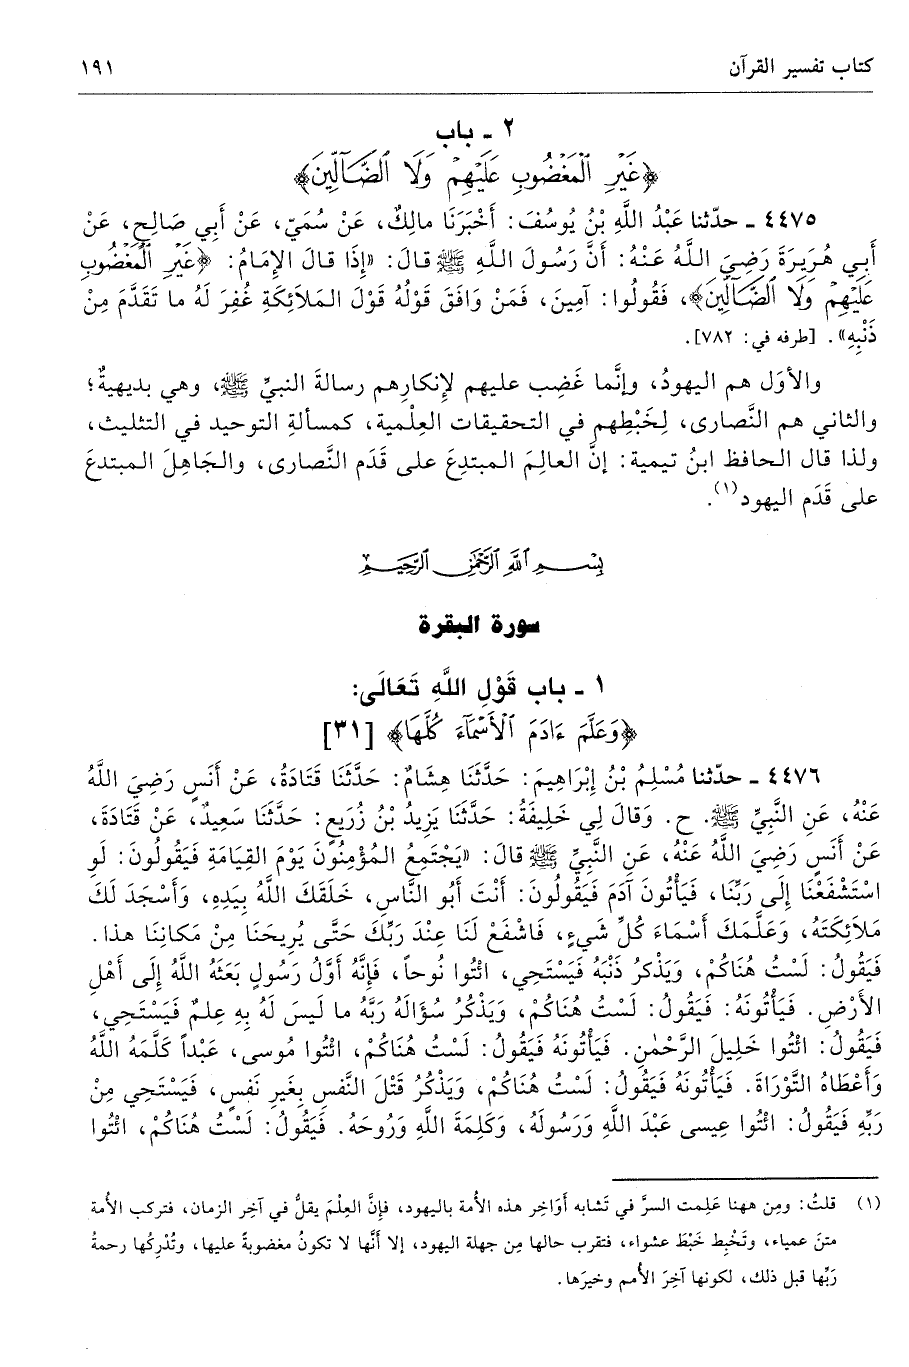 كتاب تفسير القرآن ١٩١
٢ - باب
﴿غَيْرِ الْمَغْضُوبِ عَلَيْهِمْ وَلَا الضَّآلِّينَ﴾
٤٤٧٥ - حدّثنا عَبْدُ اللَّهِ بْنُ يُوسُفَ: أَخْبَرَنَا مالِكٌ، عَنْ سُمَيٍّ، عَنْ أَبِي صَالِحٍ، عَنْ
أَبِي هُرَيرَةَ رَضِيَ اللَّهُ عَنْهُ: أَنَّ رَسُولَ اللَّهِ ﷺ قالَ: «إِذَا قالَ الإِمَامُ: ﴿غَيْرِ الْمَغْضُوبِ
عَلَيْهِمْ وَلَا الضَّآلِّينَ﴾، فَقُولُوا: آمِينَ، فَمَنْ وَافَقَ قَوْلُهُ قَوْلَ المَلاَئِكَةِ غُفِرَ لَهُ ما تَقَدَّمَ مِنْ
ذَنْبِهِ». [طرفه في: ٧٨٢].
والأوّل هم اليهودُ، وإنَّما غَضِب عليهم لإِنكارِهم رسالةَ النبيِّ ﷺ، وهي بديهيةٌ؛
والثاني هم النَّصارى، لِخَبْطِهم في التحقيقات العِلْمية، كمسألةِ التوحيد في التثليث،
ولذا قال الحافظ ابنُ تيمية: إنَّ العالِمَ المبتدِعَ على قَدَم النَّصارى، والجَاهِلَ المبتدعَ
على قَدَم اليهود(١).
بِسْمِ اللَّهِ الرَّحْمَٰنِ الرَّحِيمِ
سورة البقرة
١ - باب قَوْلِ اللَّهِ تَعَالَى:
﴿وَعَلَّمَ ءَادَمَ الْأَسْمَآءَ كُلَّهَا﴾ [٣١]
٤٤٧٦ - حدّثنا مُسْلِمُ بْنُ إِبْرَاهِيمَ: حَدَّثَنَا هِشَامٌ: حَدَّثَنَا قَتَادَةُ، عَنْ أَنَسٍ رَضِيَ اللَّهُ
عَنْهُ، عَنِ النَّبِيِّ ﷺ. ح. وَقالَ لِي خَلِيفَةُ: حَدَّثَنَا يَزِيدُ بْنُ زُرَيعٍ: حَدَّثَنَا سَعِيدٌ، عَنْ قَتَادَةَ،
عَنْ أَنَسٍ رَضِيَ اللَّهُ عَنْهُ، عَنِ النَّبِيِّ ﷺ قالَ: «يَجْتَمِعُ المُؤْمِنُونَ يَوْمَ القِيَامَةِ فَيَقُولُونَ: لَوِ
اسْتَشْفَعْنَا إِلَى رَبِّنَا، فَيَأْتُونَ آدَمَ فَيَقُولُونَ: أَنْتَ أَبُو النَّاسِ، خَلَقَكَ اللَّهُ بِيَدِهِ، وَأَسْجَدَ لَكَ
مَلاَئِكَتَهُ، وَعَلَّمَكَ أَسْمَاءَ كُلِّ شَيءٍ، فَاشْفَعْ لَنَا عِنْدَ رَبِّكَ حَتَّى يُرِيحَنَا مِنْ مَكانِنَا هذا.
فَيَقُولُ: لَسْتُ هُنَاكُمْ، وَيَذْكرُ ذَنْبَهُ فَيَسْتَحِي، ائْتُوا نُوحاً، فَإِنَّهُ أَوَّلُ رَسُولٍ بَعَثَهُ اللَّهُ إِلَى أَهْلِ
الأَرْضِ. فَيَأْتُونَهُ: فَيَقُولُ: لَسْتُ هُنَاكُمْ، وَيَذْكُرُ سُؤَالَهُ رَبَّهُ ما لَيسَ لَهُ بِهِ عِلمٌ فَيَسْتَحِي،
فَيَقُولُ: ائْتُوا خَلِيلَ الرَّحْمٰنِ. فَيَأْتُونَهُ فَيَقُولُ: لَسْتُ هُنَاكُمْ، ائْتُوا مُوسى، عَبْداً كَلَّمَهُ اللَّهُ
وَأَعْطَاهُ التَّوْرَاةَ. فَيَأْتُونَهُ فَيَقُولُ: لَسْتُ هُنَاكُمْ، وَيَذْكُرُ قَتْلَ النَّفسِ بِغَيرِ نَفسٍ، فَيَسْتَحِي مِنْ
رَبِّهِ فَيَقُولُ: ائْتُوا عِيسى عَبْدَ اللَّهِ وَرَسُولَهُ، وَكَلِمَةَ اللَّهِ وَرُوحَهُ. فَيَقُولُ: لَسْتُ هُنَاكُمْ، ائْتُوا
(١) قلتُ: ومِن ههنا عَلِمت السرَّ في تَشابه أَوَاخِر هذه الأُمة باليهود، فإِنَّ العِلْمَ يقلُّ في آخِر الزمان، فتركب الأمة
متنَ عمياء، وتَخْبِط خَبْطَ عشواء، فتقرب حالها مِن جهلة اليهود، إلا أنَّها لا تكونُ مغضوبةً عليها، وتُدْرِكُها رحمةُ
رَبِّها قبل ذلك، لكونها آخِرَ الأمم وخيرَها.